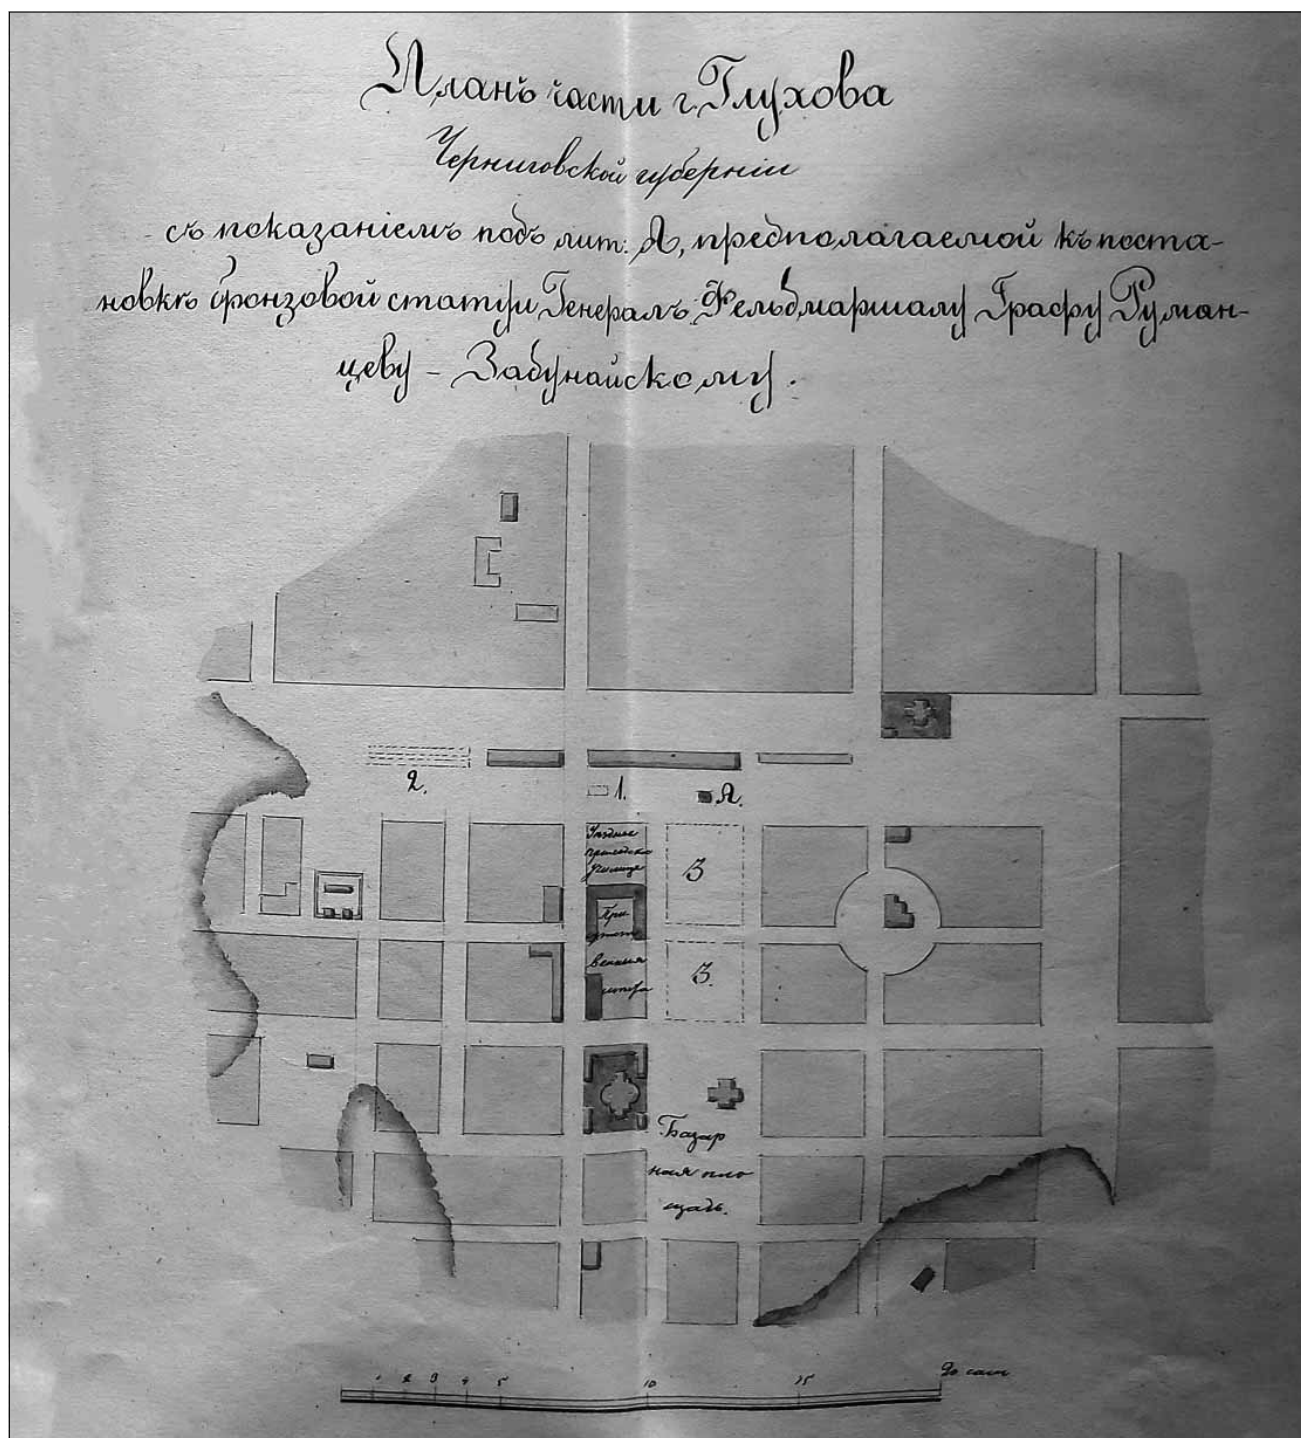 Планъ части г. Глухова
Черниговской губерніи
съ показаніемъ подъ лит: А, предполагаемой къ поста-
новкѣ бронзовой статуи Генералъ Фельдмаршалу Графу Румян-
цеву - Задунайскому.
2.
1.
А.
Уѣздное
училище
3
При
сутст
венныя
3.
Базар
ная пло
щадь.
1 2 3 4 5 10 15 20 саж